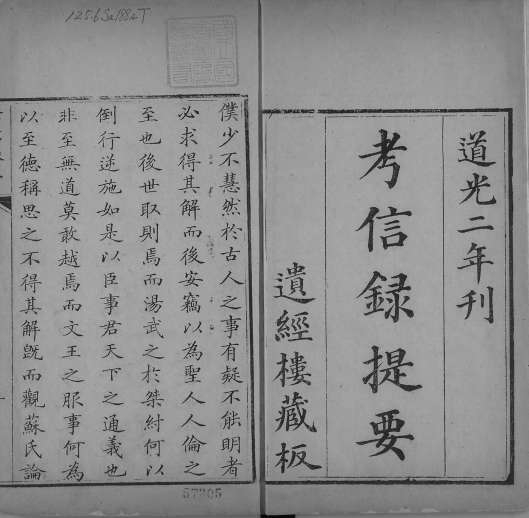 道光二年刊
考信録提要
遺經樓藏板
125.6Su188aT
僕少不慧然於古人之事有疑不能明者
必求得其解而後安竊以為聖人人倫之
至也後世取則焉而湯武之於桀紂何以
倒行逆施如是以臣事君天下之通義也
非至無道莫敢越焉而文王之服事何為
以至德稱思之不得其解旣而觀蘇氏論
57205